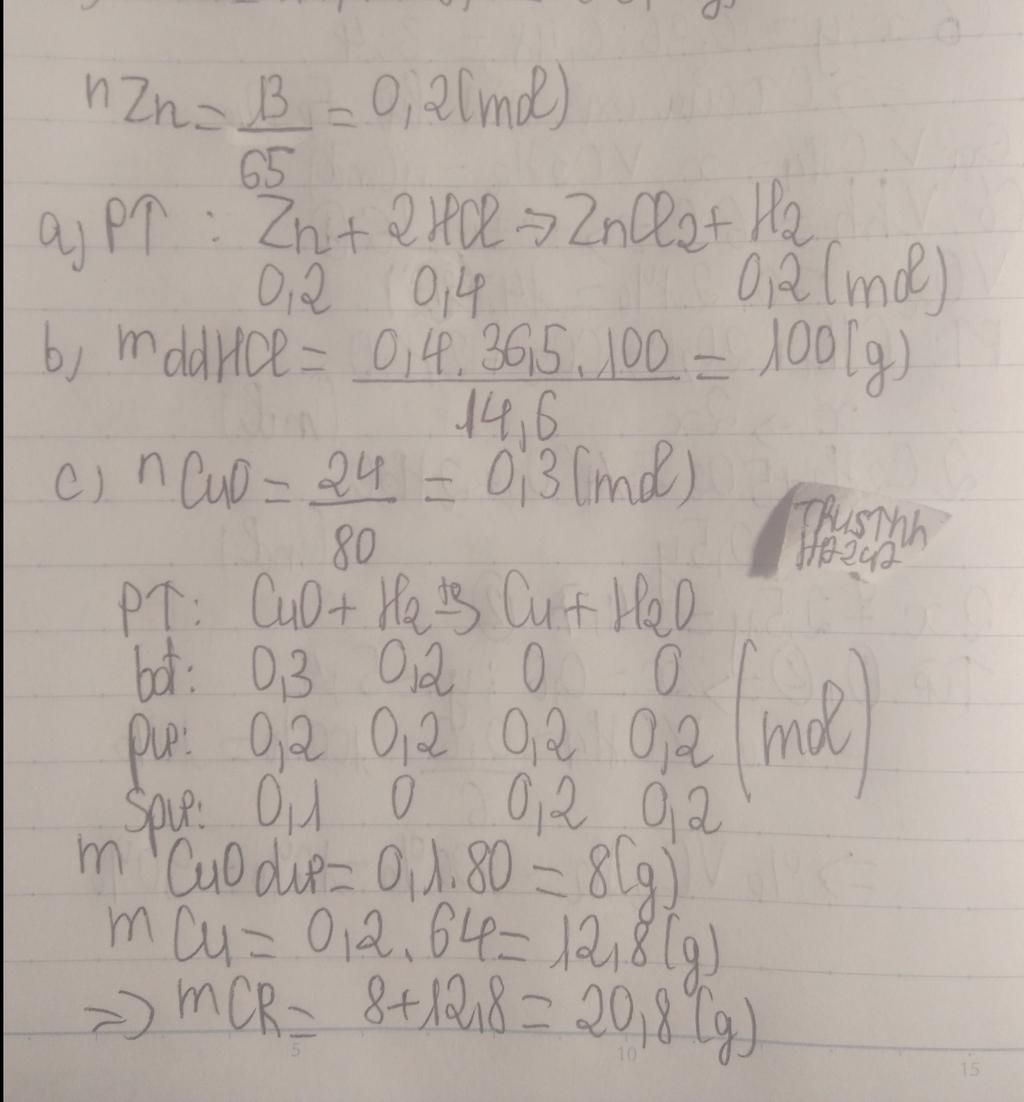 nZn = 13/65 = 0,2 (mol)
a) PT : Zn + 2HCl → ZnCl2 + H2
0,2 0,4 0,2 (mol)
b) mddHCl = 0,4.36,5.100/14,6 = 100 (g)
c) nCuO = 24/80 = 0,3 (mol)
TRUSTnh
HB242
PT: CuO + H2 to→ Cu + H2O
bđ: 0,3 0,2 0 0
pư: 0,2 0,2 0,2 0,2 (mol)
Spư: 0,1 0 0,2 0,2
m CuO dư = 0,1.80 = 8 (g)
m Cu = 0,2.64 = 12,8 (g)
=> mCR = 8+12,8 = 20,8 (g)
5 10 15